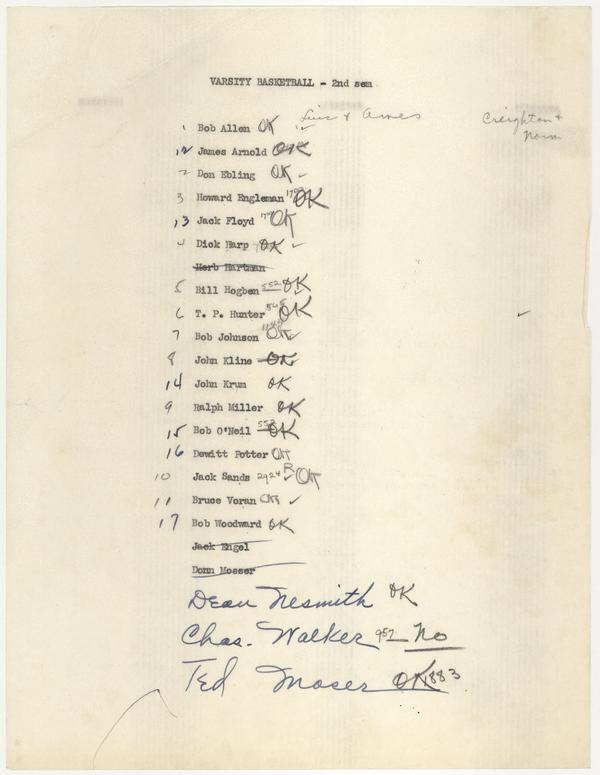 VARSITY BASKETBALL - 2nd sem
& Ames
Creighton &
Norm
1 Bob Allen OK ✓
12 James Arnold OK
2 Don Ebling OK ✓
3 Howard Engleman OK
13 Jack Floyd OK
4 Dick Harp OK ✓
Herb Hartman
5 Bill Hogben 552 OK
6 T. P. Hunter 565 OK ✓
7 Bob Johnson OK
8 John Kline OK
14 John Krum OK
9 Ralph Miller OK
15 Bob O'Neil 553 OK
16 Dewitt Potter OK
10 Jack Sands 2924 R ✓ OK
11 Bruce Voran OK ✓
17 Bob Woodward OK
Jack Engel
Donn Mosser
Dean Nesmith OK
Chas. Walker 952 No
Ted Moser OK 883